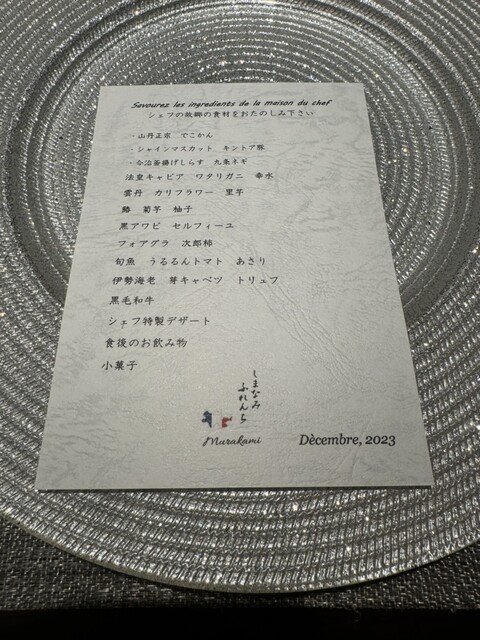 Savourez les ingredients de la maison du chef
シェフの故郷の食材をおたのしみ下さい
・山丹正宗 でこかん
・シャインマスカット キントア豚
・今治釜揚げしらす 九条ネギ
法皇キャビア ワタリガニ 幸水
雲丹 カリフラワー 里芋
鰆 菊芋 柚子
黒アワビ セルフィーユ
フォアグラ 次郎柿
旬魚 うるるんトマト あさり
伊勢海老 芽キャベツ トリュフ
黒毛和牛
シェフ特製デザート
食後のお飲み物
小菓子
しまなみ
ふれんち
Murakami
Dècembre, 2023